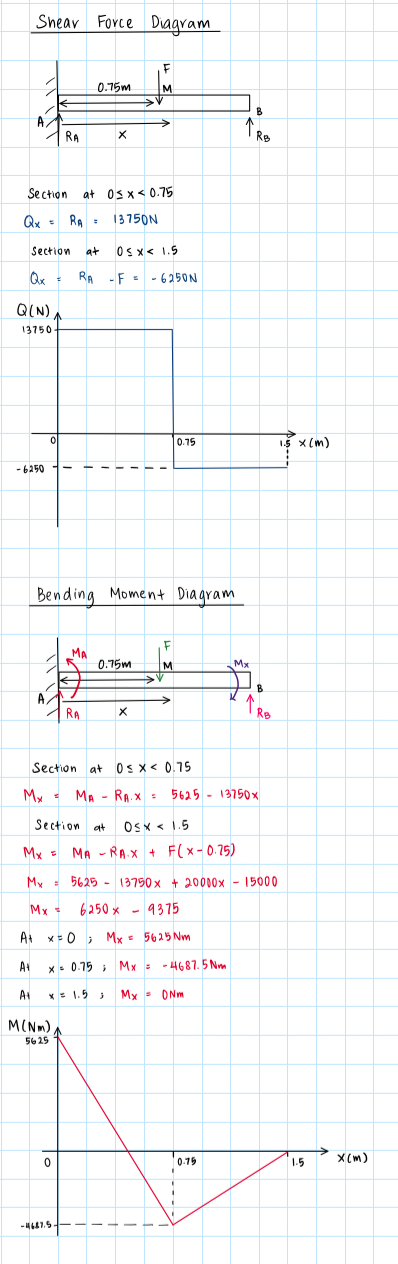 Shear Force Diagram
F
0.75m
M
A
B
RA
x
RB
Section at 0 ≤ x < 0.75
Qx = RA = 13750N
Section at 0 ≤ x < 1.5
Qx = RA - F = -6250N
Q(N)
13750
0
0.75
1.5
x(m)
-6250
Bending Moment Diagram
MA
F
0.75m
M
Mx
A
B
RA
x
RB
Section at 0 ≤ x < 0.75
Mx = MA - RA.x = 5625 - 13750x
Section at 0 ≤ x < 1.5
Mx = MA - RA.x + F(x - 0.75)
Mx = 5625 - 13750x + 20000x - 15000
Mx = 6250x - 9375
At x = 0 ; Mx = 5625Nm
At x = 0.75 ; Mx = -4687.5Nm
At x = 1.5 ; Mx = 0Nm
M(Nm)
5625
0
0.75
1.5
x(m)
-4687.5